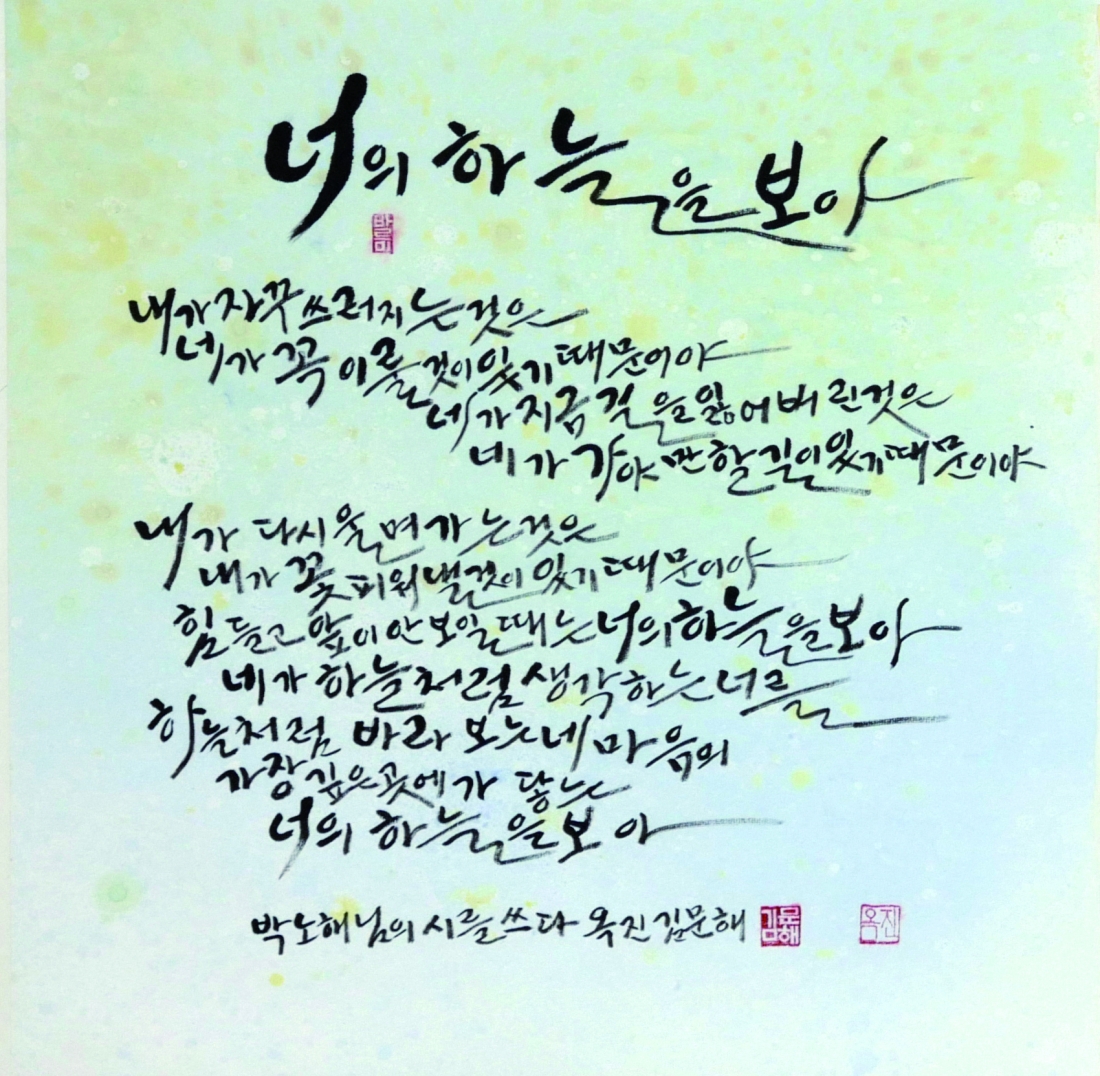 너의 하늘을 보아
내가 자꾸 쓰러지는 것은
네가 꼭 이룰 것이 있기 때문이야
네가 지금 길을 잃어버린 것은
네가 가야만 할 길이 있기 때문이야
네가 다시 울며 가는 것은
내가 꽃 피워 낼 것이 있기 때문이야
힘들고 앞이 안 보일 때는 너의 하늘을 보아
네가 하늘처럼 생각하는 너를
하늘처럼 바라보는 네 마음의
가장 깊은 곳에 가 닿는
너의 하늘을 보아
박노해님의 시를 쓰다 옥진 김문해
김문해
옥진